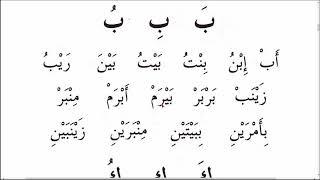 بَ بِ بُ
أَبْ إِبْنُ بِنْتُ بَيْتُ بَيْنَ رَيْبُ
زَيْنَبْ بَرْبَرْ بَيْرَمْ أَبْرَمْ مِنْبَرْ
بِأَمْرَيْنِ بِبَيْتَيْنِ مِنْبَرَيْنِ زَيْنَبَيْنِ
كَ كِ كُ